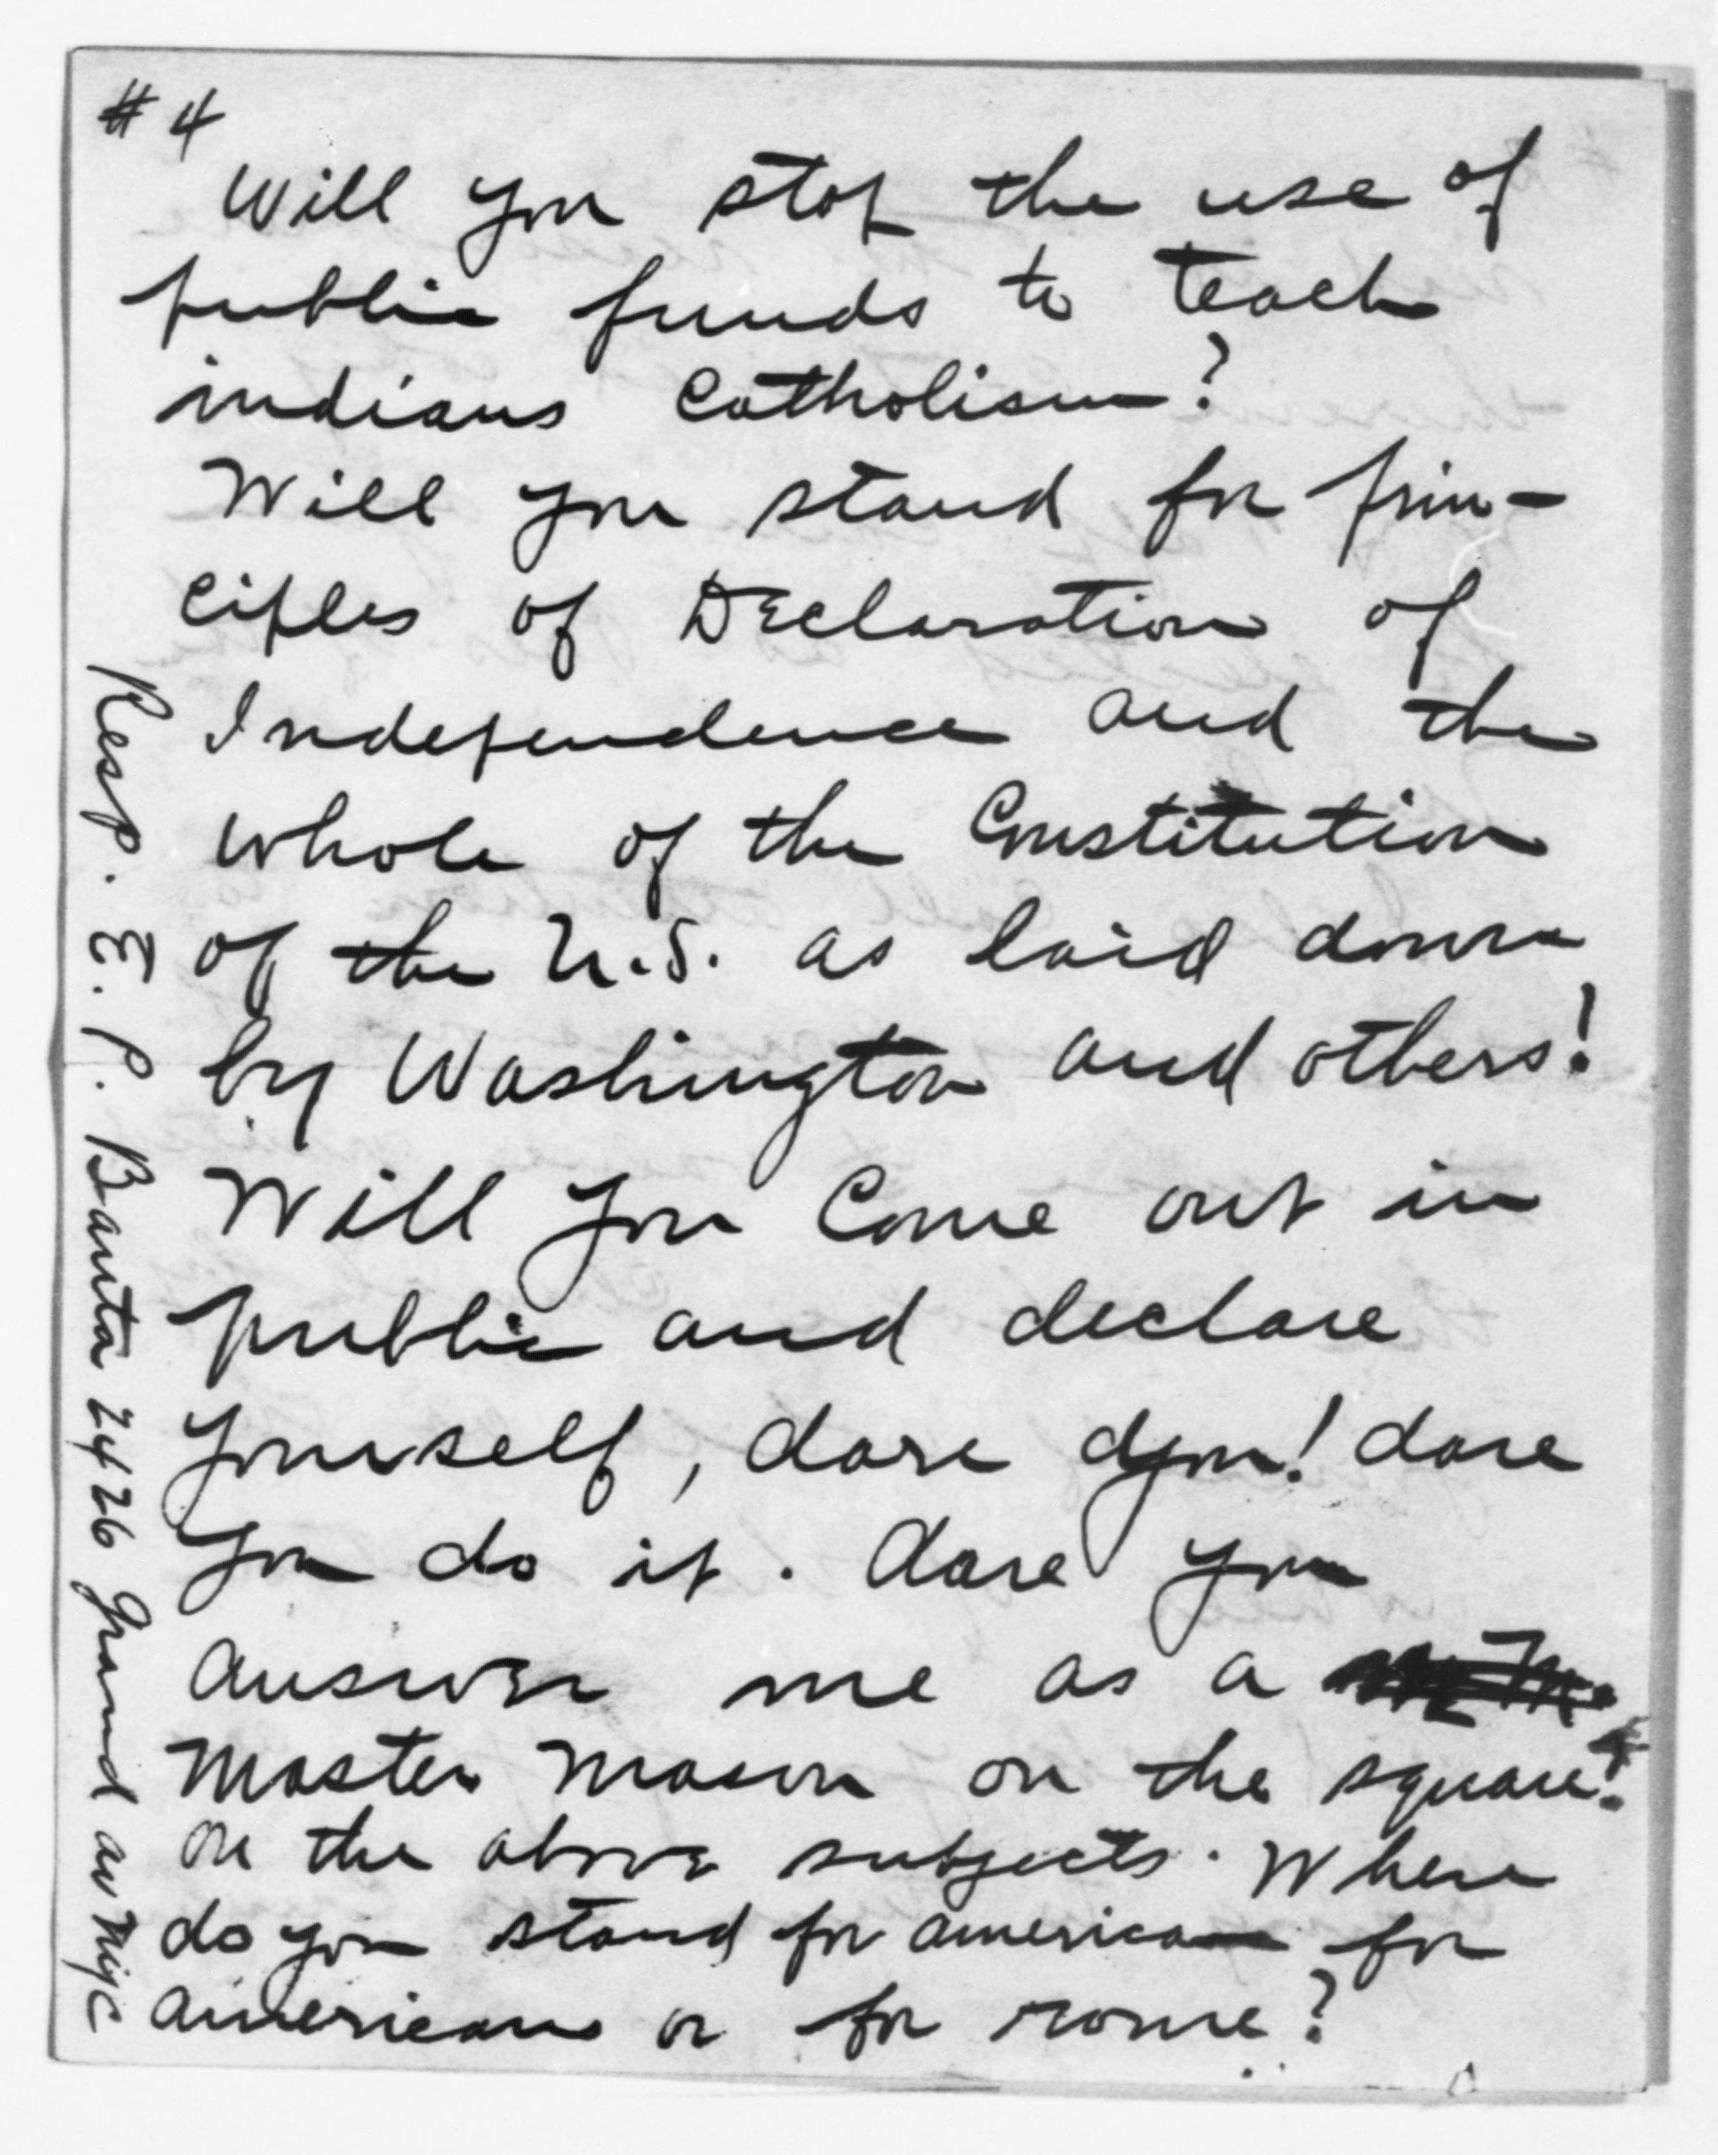 # 4
Will you stop the use of
public funds to teach
indians Catholism?
Will you stand for prin-
ciples of Declaration of
Independence and the
whole of the Constitution
of the U.S. as laid down
by Washington and others!
Will you come out in
public and declare
yourself, dare you! dare
you do it. Dare you
answer me as a
Master Mason on the square!
on the above subjects. Where
do you stand for american for
americans or for rome?
Resp. E. P. Banta 2426 Grand av NYC